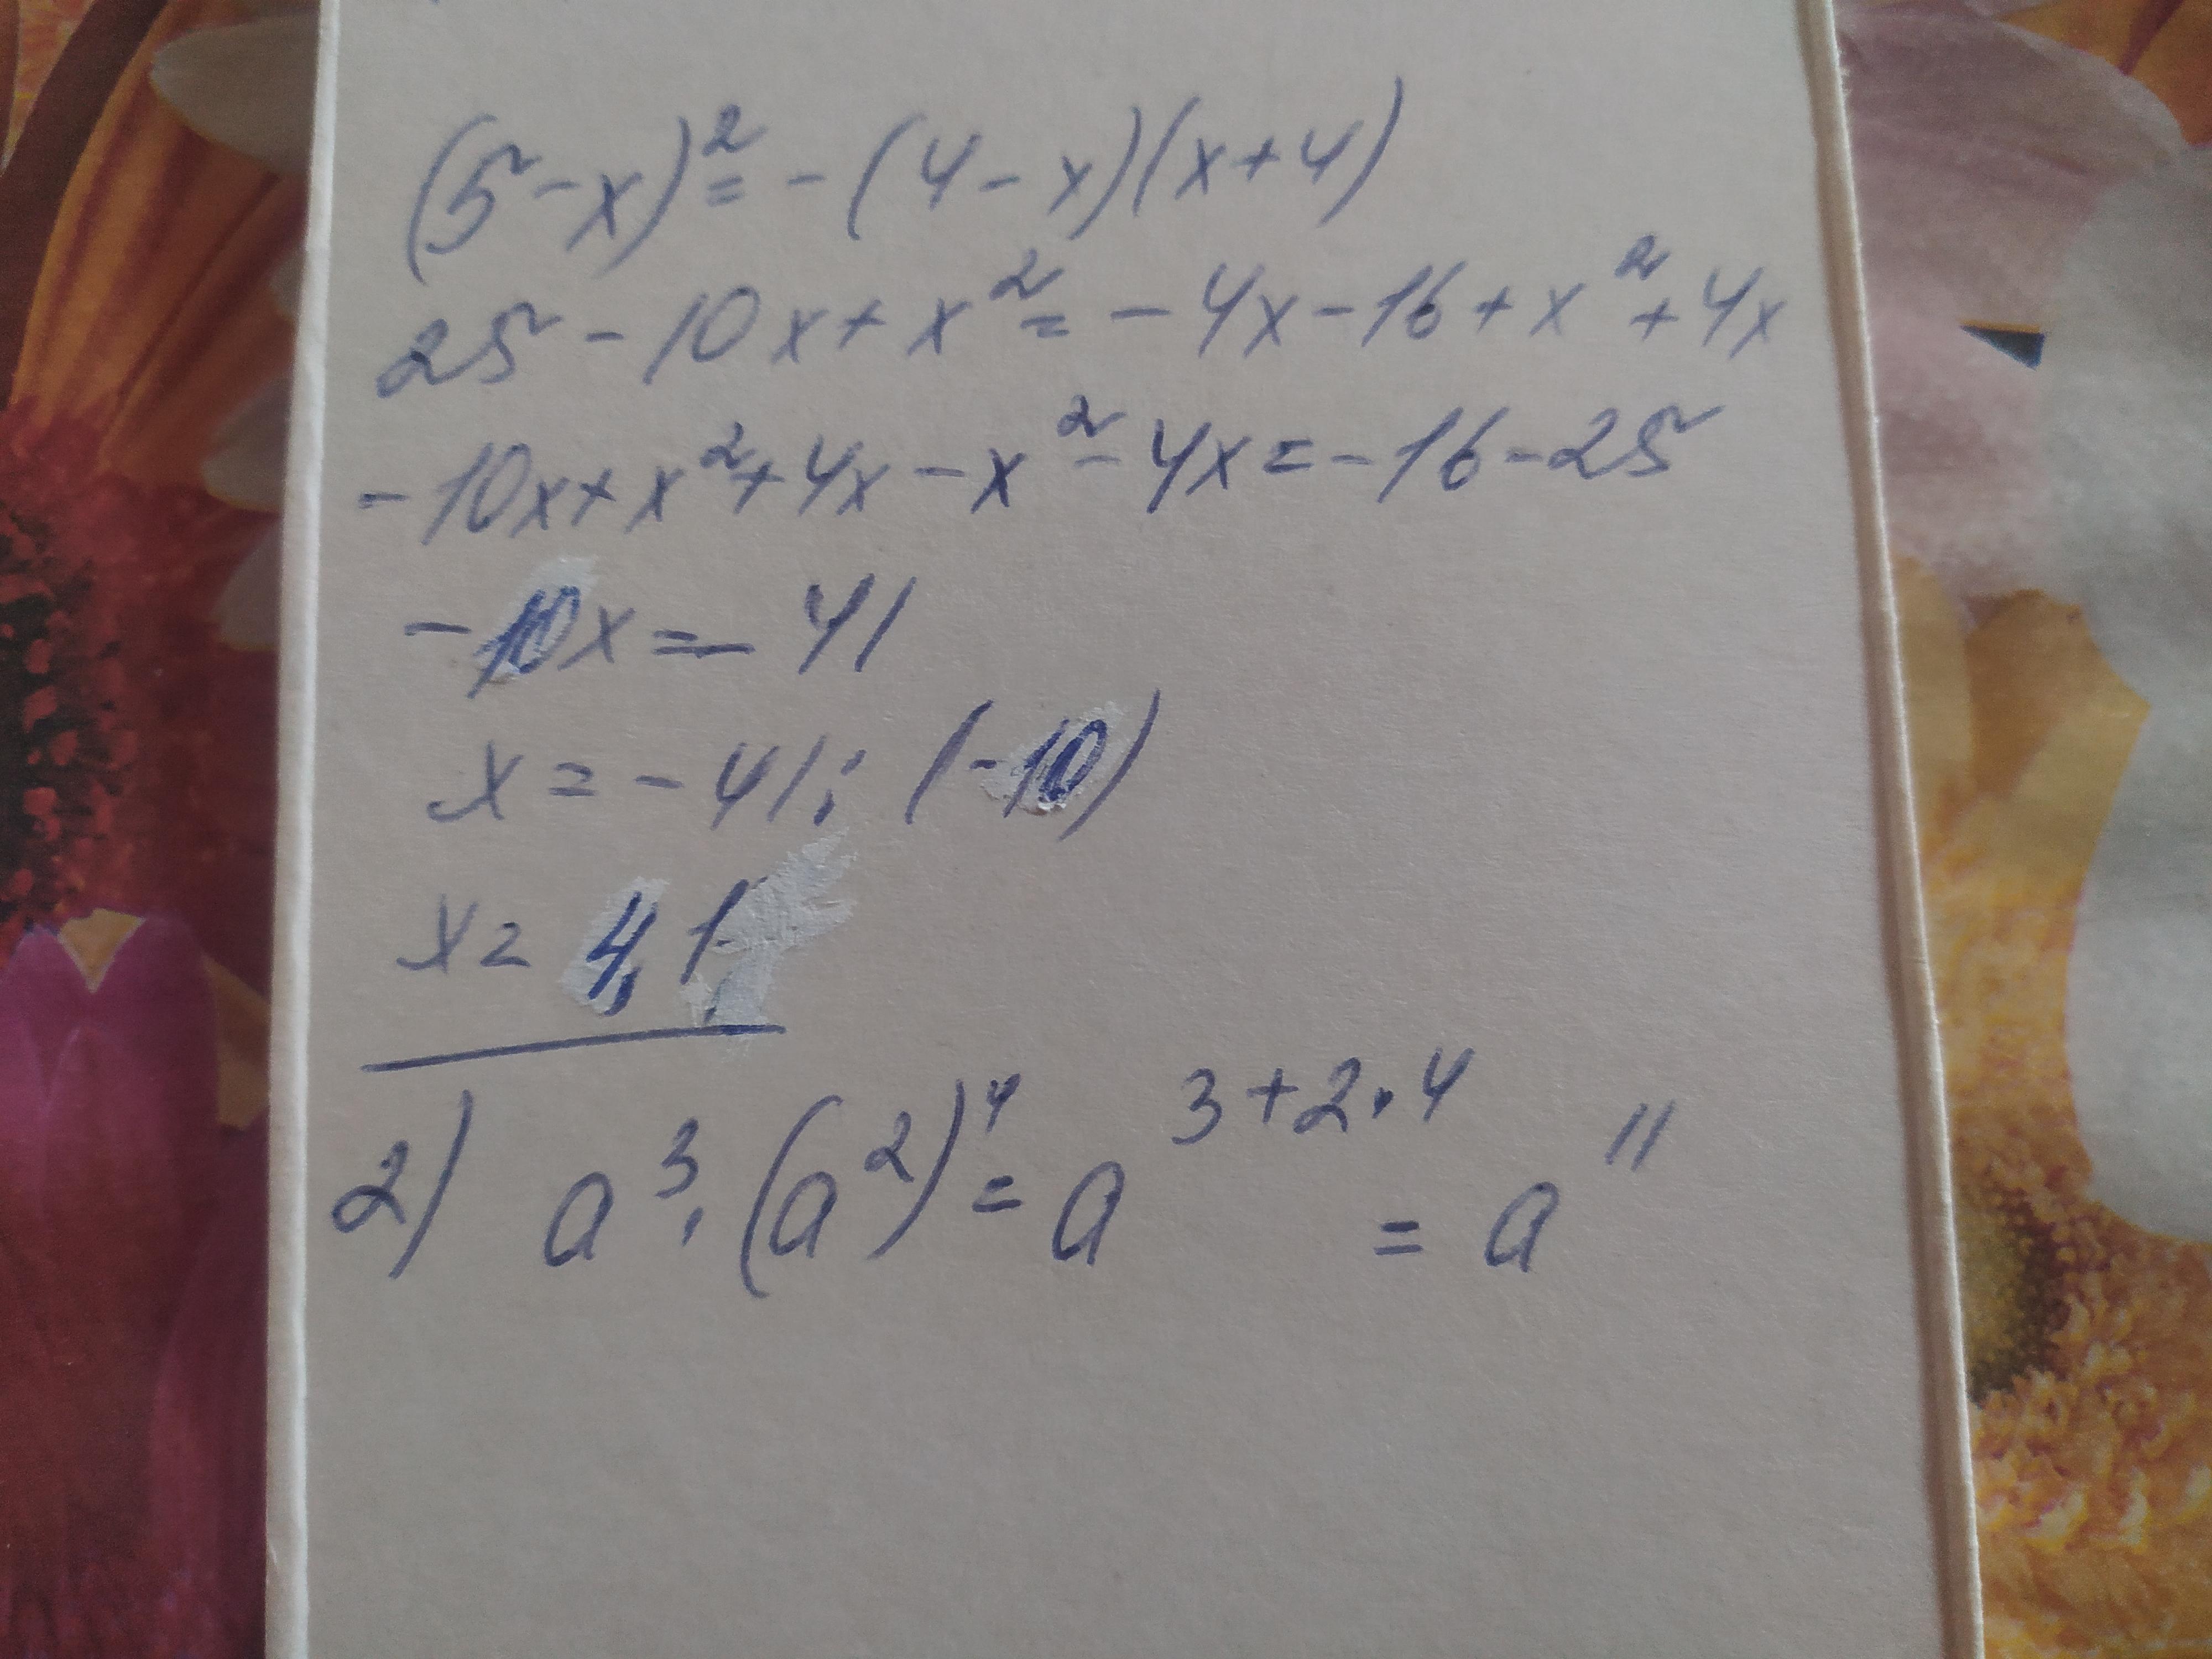 (5-x)² = -(4-x)(x+4)
25-10x+x² = -4x-16+x²+4x
-10x+x²+4x-x²-4x=-16-25
-10x=-41
x=-41:(-10)
x=4,1
2) a³·(a²)⁴=a³⁺²·⁴=a¹¹